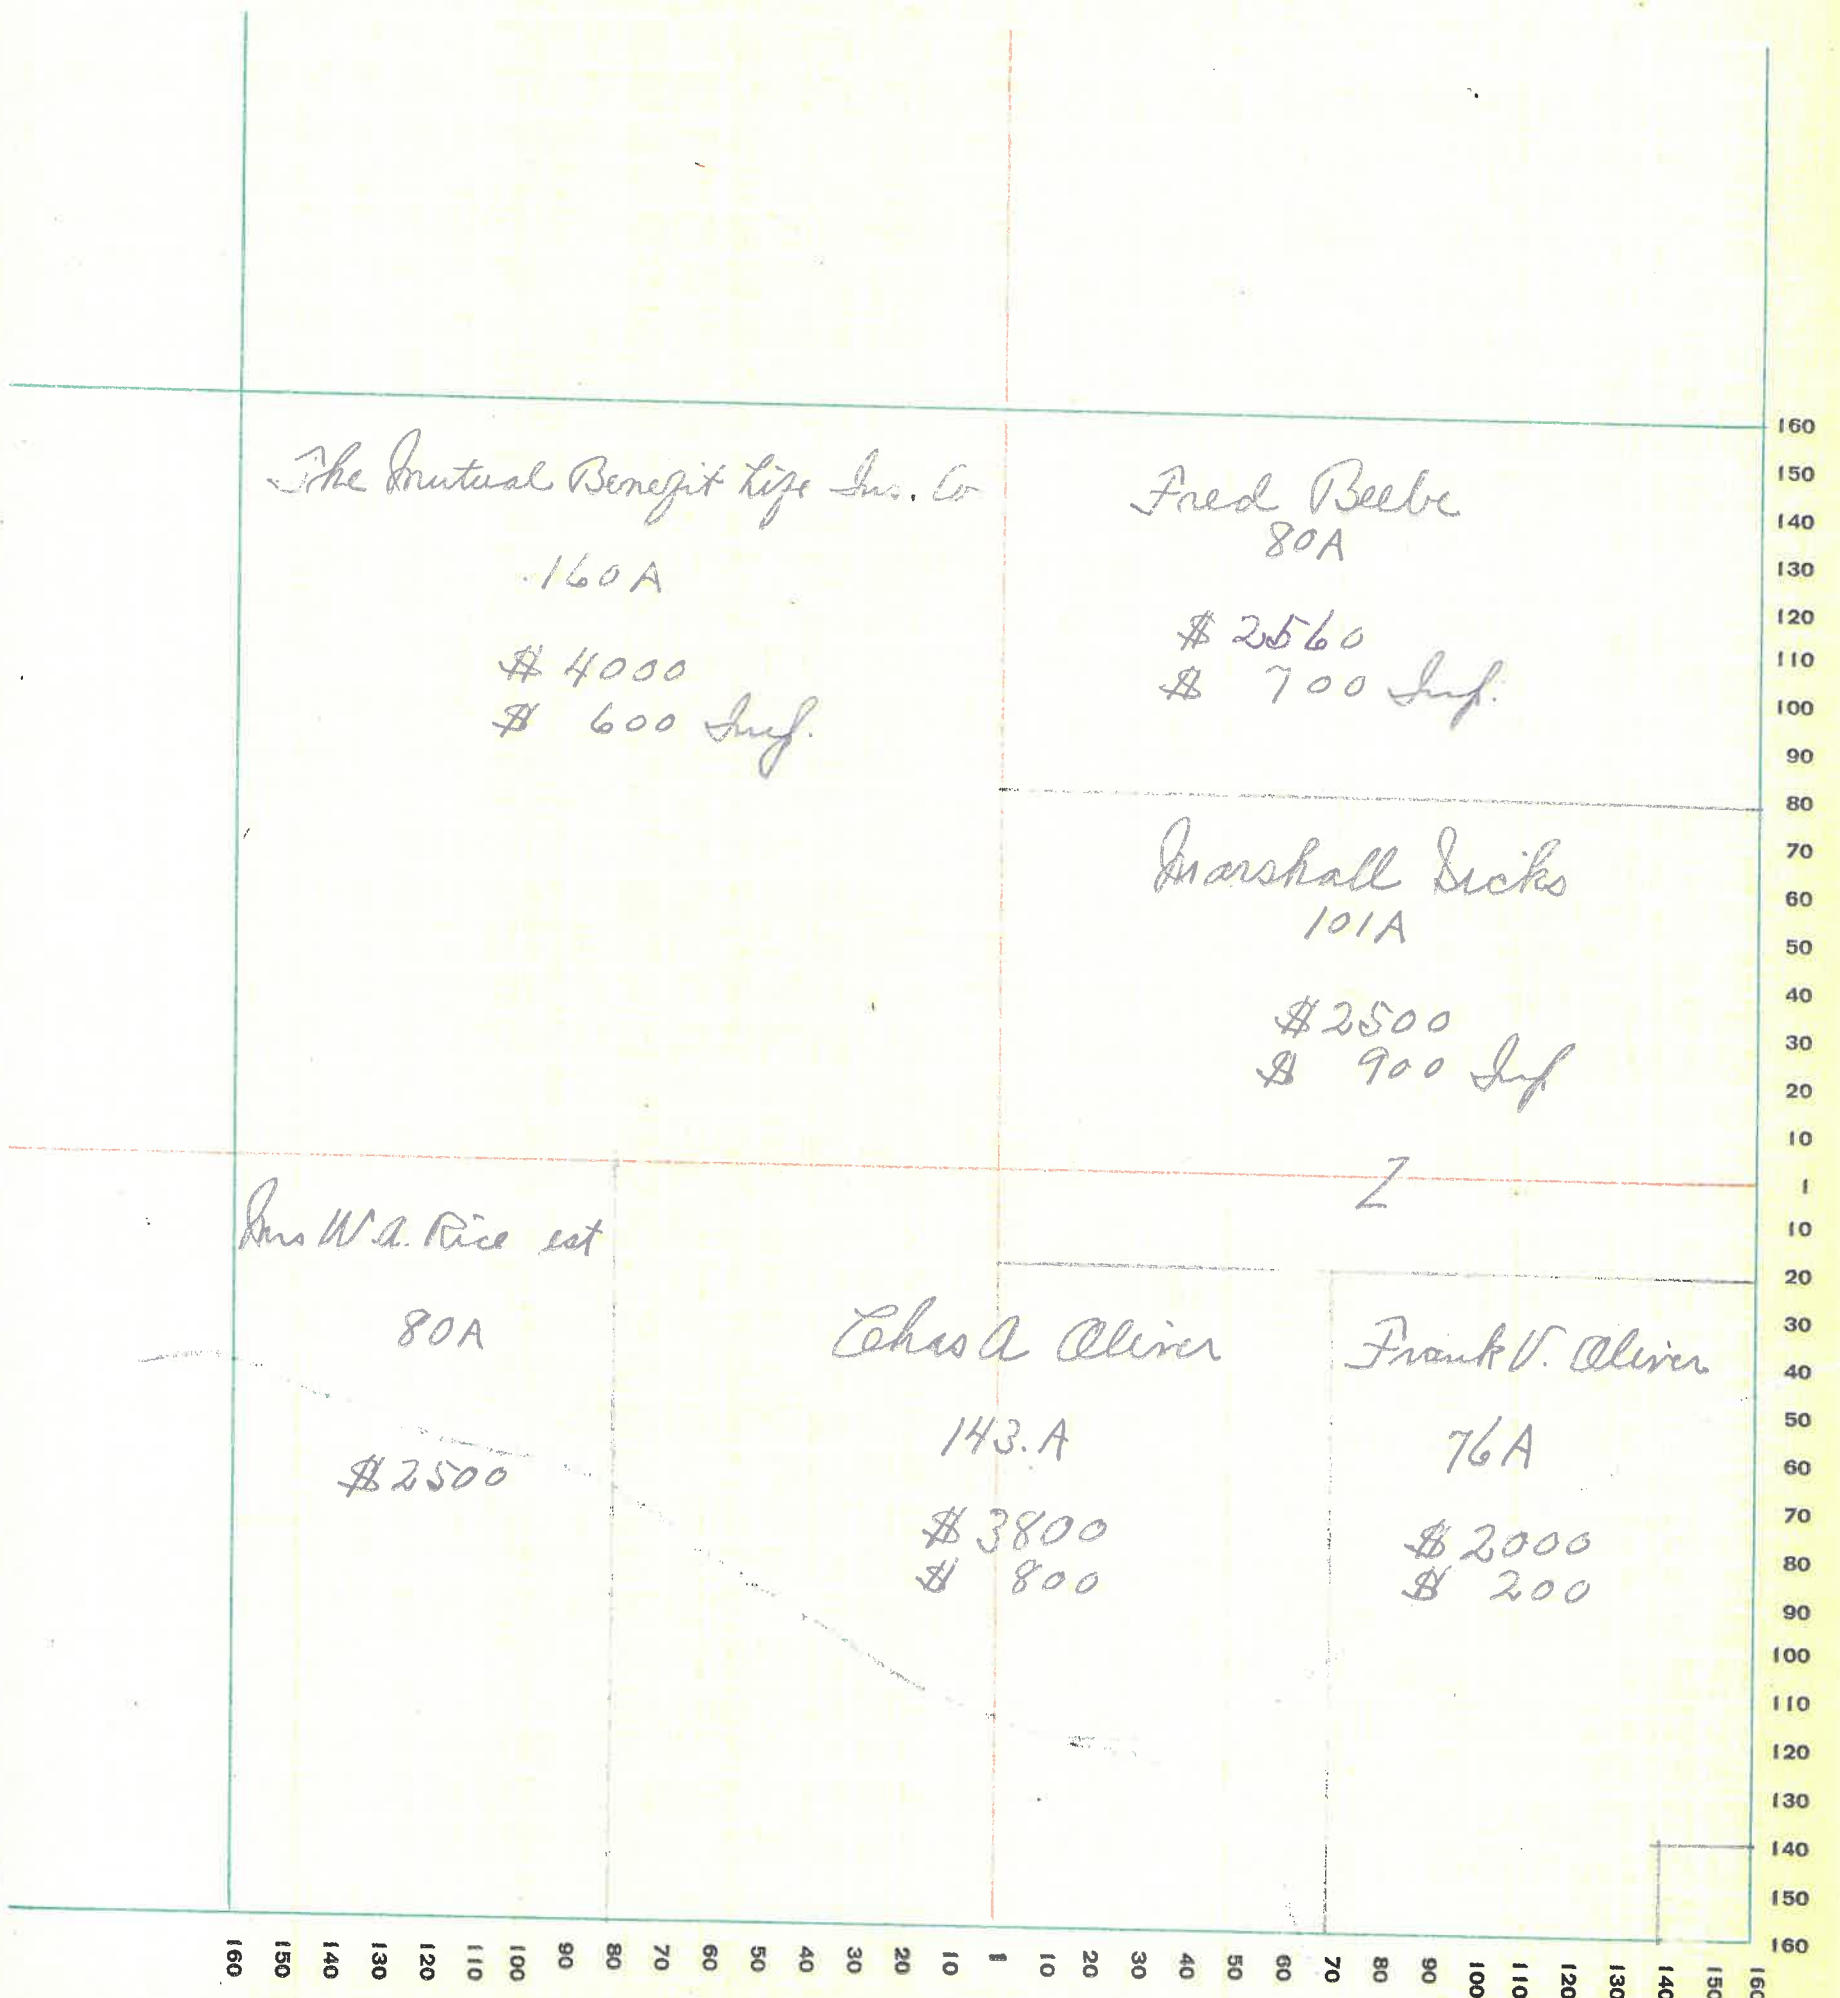 The Mutual Benefit Life Ins. Co
160 A
$ 4000
$ 600 Imp.
Fred Beebe
80A
$ 2560
$ 700 Imp.
Marshall Dicks
101A
$2500
$ 900 Imp
Z
Mrs W.A. Rice est
80A
$2500
Chas A Oliver
143.A
$ 3800
$ 800
Frank V. Oliver
76A
$ 2000
$ 200
160
150
140
130
120
110
100
90
80
70
60
50
40
30
20
10
1
10
20
30
40
50
60
70
80
90
100
110
120
130
140
150
160
160 150 140 130 120 110 100 90 80 70 60 50 40 30 20 10 1 10 20 30 40 50 60 70 80 90 100 110 120 130 140 150 160